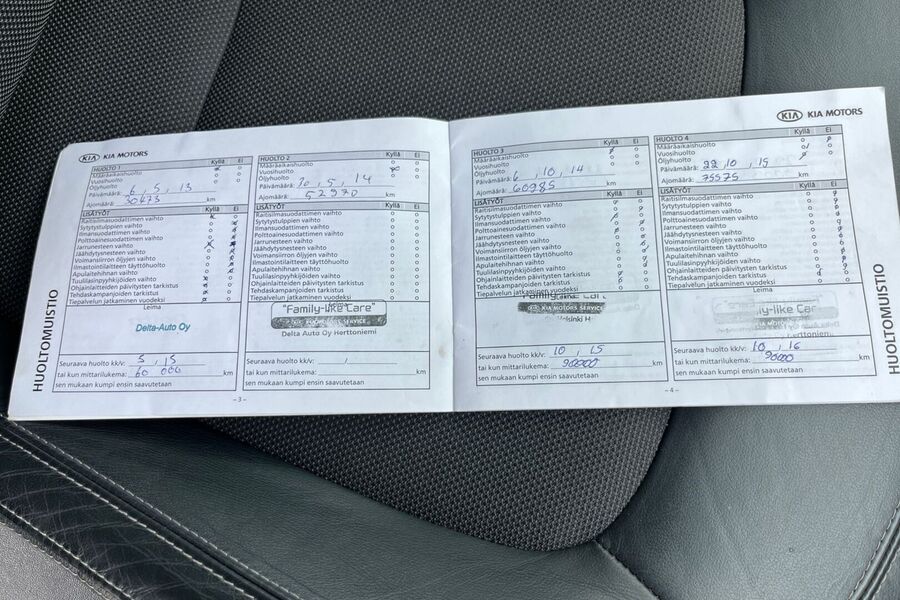 KIA MOTORS
HUOLTO 1 Kyllä Ei
Määräaikaishuolto
Vuosihuolto
Öljyhuolto
Päivämäärä: 6, 5, 13
Ajomäärä: 30473 km
LISÄTYÖT Kyllä Ei
Raitisilmasuodattimen vaihto
Sytytystulppien vaihto
Ilmansuodattimen vaihto
Polttoainesuodattimen vaihto
Jarrunesteen vaihto
Jäähdytysnesteen vaihto
Voimansiirron öljyjen vaihto
Ilmastointilaitteen täyttöhuolto
Apulaitehihnan vaihto
Tuulilasinpyyhkijöiden vaihto
Ohjainlaitteiden päivitysten tarkistus
Tehdaskampanjoiden tarkistus
Tiepalvelun jatkaminen vuodeksi
Leima
Delta-Auto Oy
Seuraava huolto kk/v: 5, 15
tai kun mittarilukema: 60 000 km
sen mukaan kumpi ensin saavutetaan
HUOLTOMUISTIO
-3-
HUOLTO 2 Kyllä Ei
Määräaikaishuolto
Vuosihuolto
Öljyhuolto
Päivämäärä: 30, 5, 14
Ajomäärä: 52970 km
LISÄTYÖT Kyllä Ei
Raitisilmasuodattimen vaihto
Sytytystulppien vaihto
Ilmansuodattimen vaihto
Polttoainesuodattimen vaihto
Jarrunesteen vaihto
Jäähdytysnesteen vaihto
Voimansiirron öljyjen vaihto
Ilmastointilaitteen täyttöhuolto
Apulaitehihnan vaihto
Tuulilasinpyyhkijöiden vaihto
Ohjainlaitteiden päivitysten tarkistus
Tehdaskampanjoiden tarkistus
Tiepalvelun jatkaminen vuodeksi
Leima
"Family-like Care"
KIA MOTORS SERVICE
Delta Auto Oy Herttoniemi
Seuraava huolto kk/v:
tai kun mittarilukema: km
sen mukaan kumpi ensin saavutetaan
HUOLTO 3 Kyllä Ei
Määräaikaishuolto
Vuosihuolto
Öljyhuolto
Päivämäärä: 6, 10, 14
Ajomäärä: 60985 km
LISÄTYÖT Kyllä Ei
Raitisilmasuodattimen vaihto
Sytytystulppien vaihto
Ilmansuodattimen vaihto
Polttoainesuodattimen vaihto
Jarrunesteen vaihto
Jäähdytysnesteen vaihto
Voimansiirron öljyjen vaihto
Ilmastointilaitteen täyttöhuolto
Apulaitehihnan vaihto
Tuulilasinpyyhkijöiden vaihto
Ohjainlaitteiden päivitysten tarkistus
Tehdaskampanjoiden tarkistus
Tiepalvelun jatkaminen vuodeksi
Leima
KIA MOTORS SERVICE
Seuraava huolto kk/v: 10 15
tai kun mittarilukema: 90000 km
sen mukaan kumpi ensin saavutetaan
KIA MOTORS
HUOLTO 4 Kyllä Ei
Määräaikaishuolto
Vuosihuolto
Öljyhuolto
Päivämäärä: 22, 10, 15
Ajomäärä: 75575 km
LISÄTYÖT Kyllä Ei
Raitisilmasuodattimen vaihto
Sytytystulppien vaihto
Ilmansuodattimen vaihto
Polttoainesuodattimen vaihto
Jarrunesteen vaihto
Jäähdytysnesteen vaihto
Voimansiirron öljyjen vaihto
Ilmastointilaitteen täyttöhuolto
Apulaitehihnan vaihto
Tuulilasinpyyhkijöiden vaihto
Ohjainlaitteiden päivitysten tarkistus
Tehdaskampanjoiden tarkistus
Tiepalvelun jatkaminen vuodeksi
Leima
KIA MOTORS SERVICE
Seuraava huolto kk/v: 10, 16
tai kun mittarilukema: 90000 km
sen mukaan kumpi ensin saavutetaan
-4-
HUOLTOMUISTIO